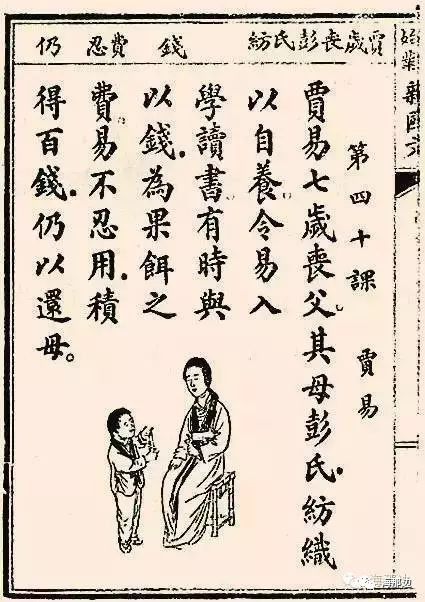 賈歲喪彭氏紡 錢 費忍 仍
第四十課 賈易
賈易七歲喪父。其母彭氏、紡織
以自養。令易入
學讀書。有時與
以錢、為果餌之
費。易不忍用、積
得百錢、仍以還母。